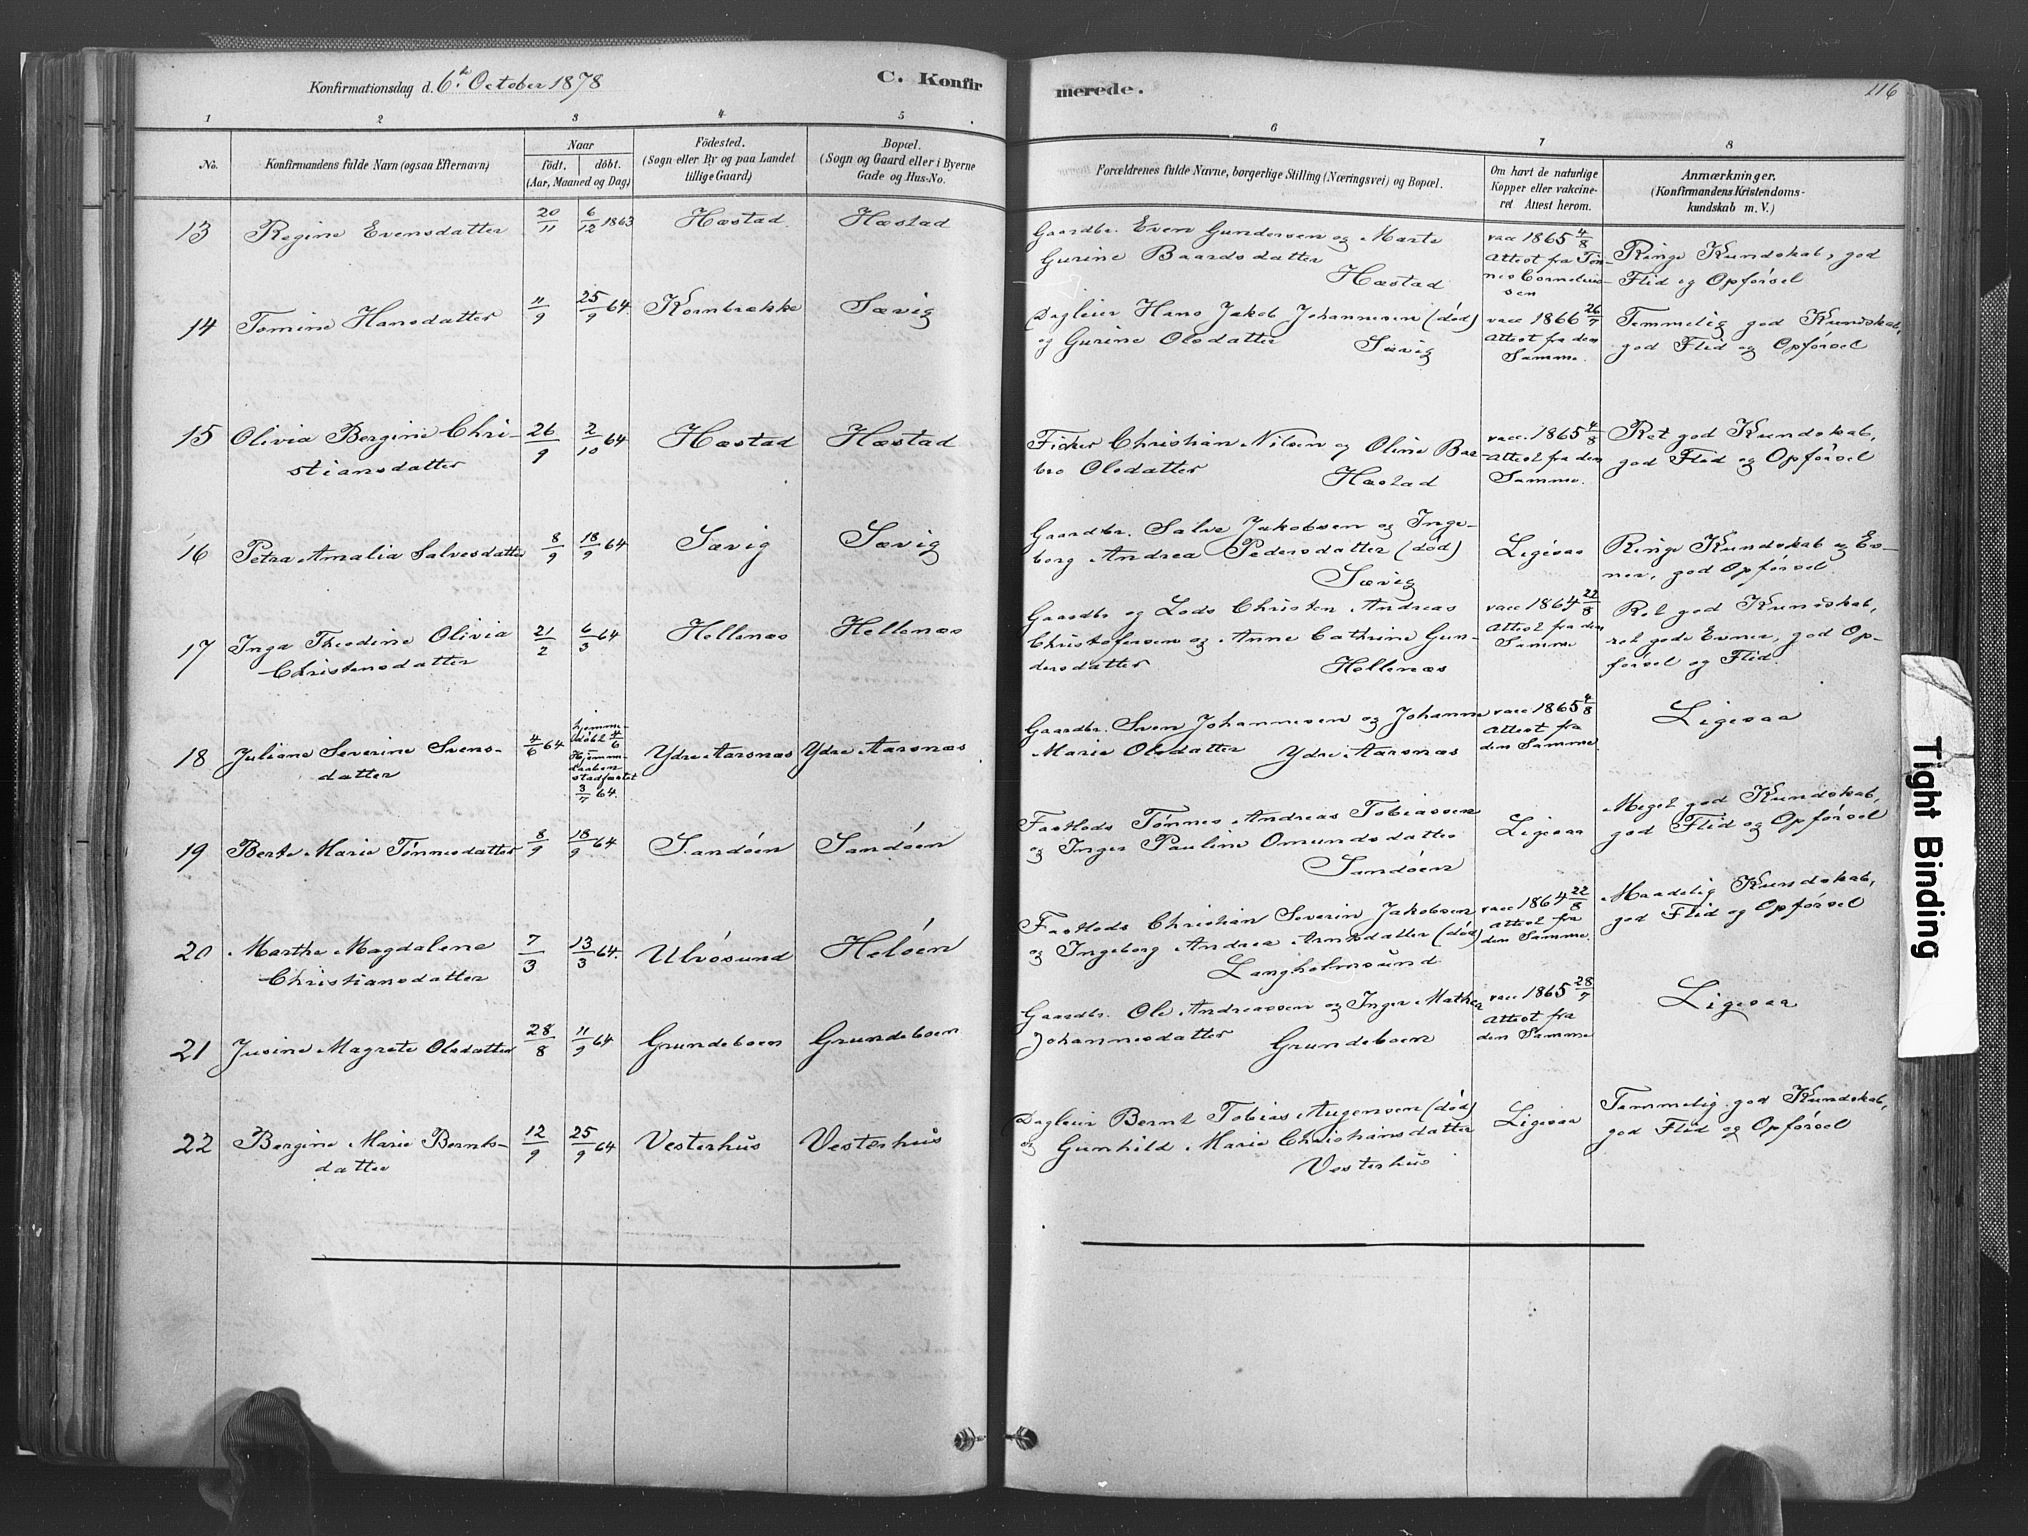 Konfirmationsdag d. 6te October 1878
C. Konfirmerede.
116
1 2 3 4 5 6 7 8
No.
Konfirmandens fulde Navn (ogsaa Efternavn)
Naar
født. døbt.
(Aar, Maaned og Dag)
Fødested.
(Sogn eller By og paa Landet
tillige Gaard)
Bopæl.
(Sogn og Gaard eller i Byerne
Gade og Hus-No.
Forældrenes fulde Navne, borgerlige Stilling (Næringsvei) og Bopæl.
Om havt de naturlige
Kopper eller vakcine-
ret Attest herom.
Anmærkninger.
(Konfirmandens Kristendoms-
kundskab m. V.)
13 Regine Evensdatter 20/11 6/12 1863 Hæstad Hæstad
Gaardbr. Even Gundersen og Marte
Gurine Baardsdatter
Hæstad
vacc 1865 4/8
Attest fra Tøn-
nes Corneliu-
sen
Ringe Kundskab, god
Flid og Opførsel
14 Tomine Hansdatter 11/9 25/9 64 Kornbrække Sævig
Dagleier Hans Jakob Johannesen (død)
og Gurine Olsdatter
Sævig
vacc 1866 26/7
Attest fra den
Samme.
Temmelig god Kundskab,
god Flid og Opførsel
15 Olivia Bergine Chri-
stiansdatter 26/9 2/10 64 Hæstad Hæstad
Fisker Christian Nilsen og Oline Bar-
bro Olsdatter
Hæstad
vacc. 1865 4/8
Attest fra den
Samme.
Ret god Kundskab,
god Flid og Opførsel
16 Petra Amalia Salvesdatter 8/9 18/9 64 Sævig Sævig
Gaardbr. Salve Jakobsen og Inge-
borg Andrea Pedersdatter (død)
Sævig
Ligesaa
Ringe Kundskab og Ev-
ner, god Opførsel
17 Inga Theodine Olivia
Christensdatter 21/2 6/3 64 Hellenæs Hellenæs
Gaardbr og Lods Christen Andreas
Christofersen og Anne Cathrine Gun-
dersdatter
Hellenæs
vacc 1864 22/8
Attest fra den
Samme
Ret god Kundskab,
ret gode Evner, god Op-
førsel og Flid.
18 Juliane Severine Svens-
datter 4/6 64
hjemme-
døbt 4/6
Hjemme-
daaben
stadfæstet
3/7 64.
Ydre Aarsnæs Ydre Aarsnæs
Gaardbr. Sven Johannesen og Johanne
Marie Olsdatter Ydre Aarsnæs
vacc 1865 4/8
Attest fra
den Samme
Ligesaa
19 Berte Marie Tønnesdatter 8/9 18/9 64 Sandøen Sandøen
Fastlods Tønnes Andreas Tobiassen
og Inger Pauline Omundsdatter
Sandøen
Ligesaa
Meget god Kundskab,
god Flid og Opførsel
20 Marthe Magdalene
Christiansdatter 7/3 13/3 64. Ulvøsund Heløen
Fastlods Christian Severin Jakobsen
og Ingeborg Andrea Arntsdatter (død)
Langholmsund
vacc 1864 22/8
Attest fra
den Samme.
Maadelig Kundskab,
god Flid og Opførsel
21 Jusine Magrete Olsdatter 28/8 11/9 64 Grundeboen Grundeboen
Gaardbr. Ole Andreassen og Inger Mathea
Johannesdatter
Grundeboen
vacc 1865 28/7
Attest fra
den Samme
Ligesaa
22 Bergine Marie Bernts-
datter 12/9 25/9 64 Vesterhus Vesterhus
Dagleier Bernt Tobias Augensen (død)
og Gunhild Marie Christiansdatter
Vesterhus
Ligesaa
Temmelig god Kundskab,
god Flid og Opførsel
Tight Binding